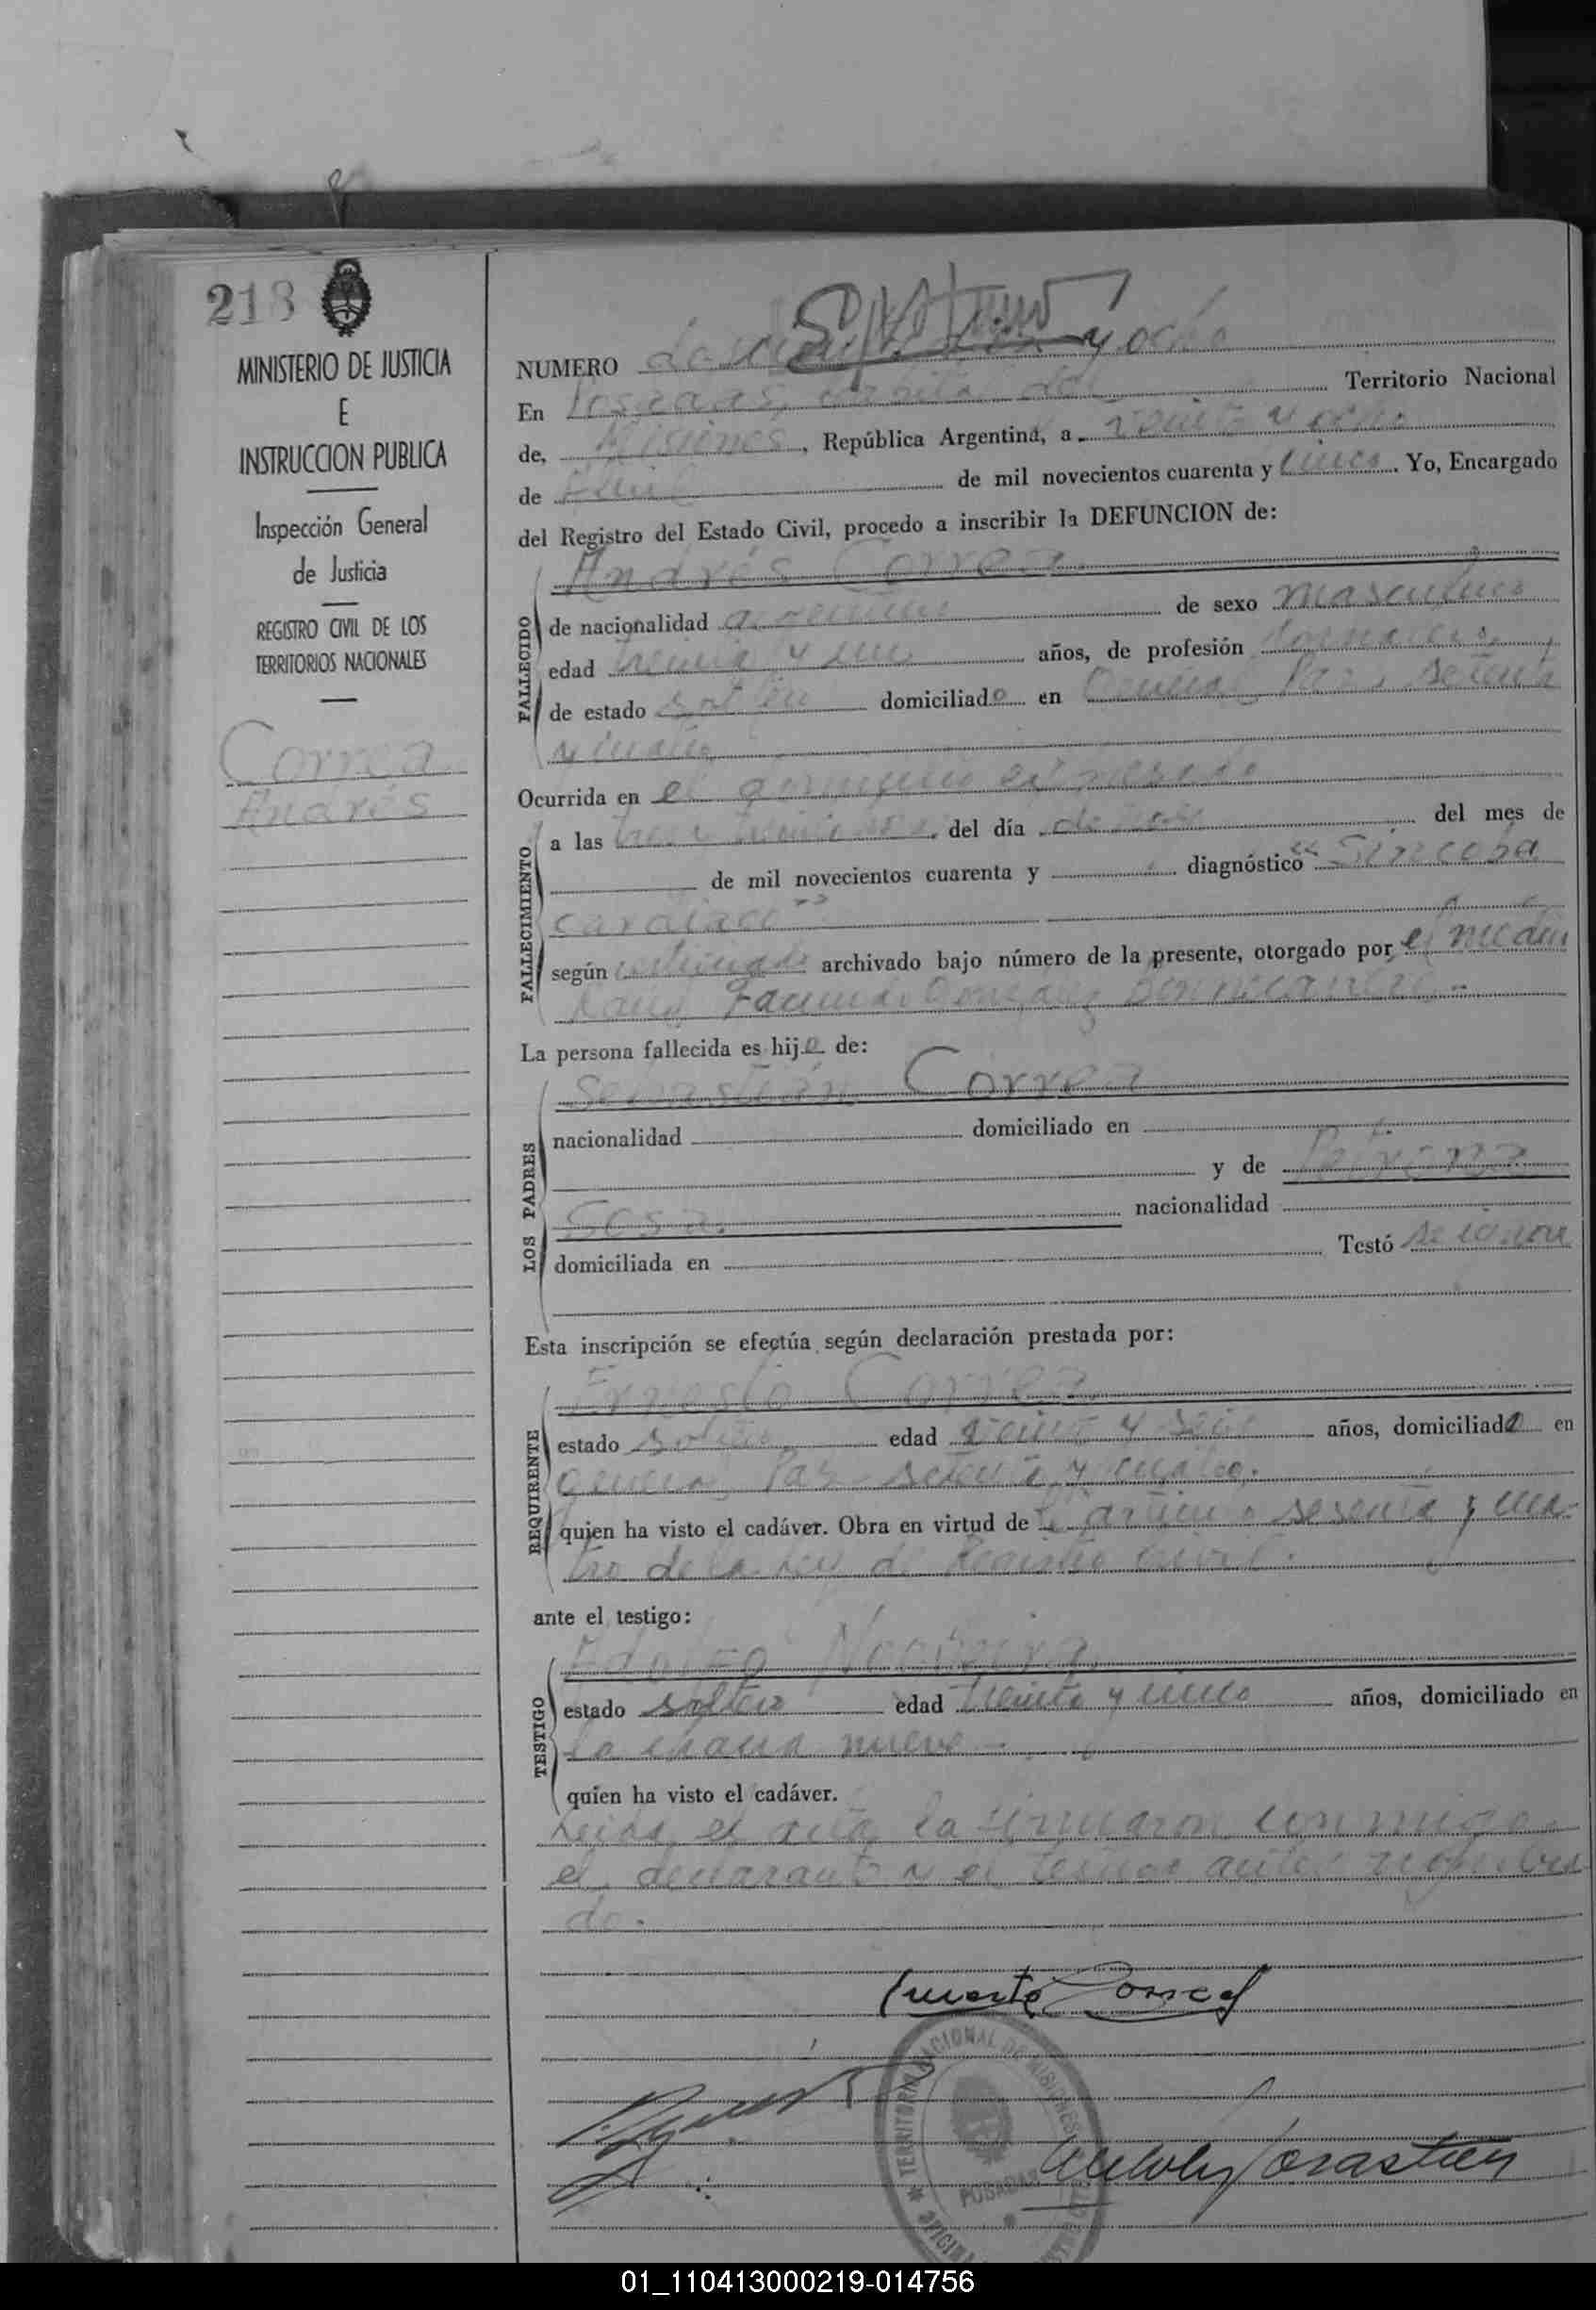 218
MINISTERIO DE JUSTICIA
E
INSTRUCCION PUBLICA
Inspección General
de Justicia
REGISTRO CIVIL DE LOS
TERRITORIOS NACIONALES
Correa
Andrés
NUMERO y ocho
En Posadas, capital del Territorio Nacional
de, Misiones, República Argentina, a veinte y ocho
de de mil novecientos cuarenta y cinco. Yo, Encargado
del Registro del Estado Civil, procedo a inscribir la DEFUNCION de:
FALLECIDO
Andrés Correa.
de nacionalidad argentino de sexo masculino
edad treinta y un años, de profesión jornalero,
de estado soltero domiciliado en General Paz, setenta
y cuatro
Ocurrida en el domicilio expresado
FALLECIMIENTO
a las del día de hoy del mes de
de mil novecientos cuarenta y diagnóstico "Síncope
cardíaco"
según certificado archivado bajo número de la presente, otorgado por el médico
Facundo González
La persona fallecida es hijo de:
LOS PADRES
Sebastián Correa
nacionalidad domiciliado en
y de Petrona
Sosa.
nacionalidad
domiciliada en Testó se ignora
Esta inscripción se efectúa según declaración prestada por:
REQUIRENTE
Ernesto Correa
estado soltero edad veinte y seis años, domiciliado en
General Paz setenta y cuatro,
quien ha visto el cadáver. Obra en virtud de artículo sesenta y cua-
tro de la Ley de Registro Civil.
ante el testigo:
TESTIGO
Adolfo
estado soltero edad treinta y cinco años, domiciliado en
la chacra nueve
quien ha visto el cadáver.
Leída el acta la firmaron conmigo
el declarante y el testigo antes
do.
Ernesto Correa
TERRITORIO NACIONAL DE MISIONES
POSADAS
01_110413000219-014756